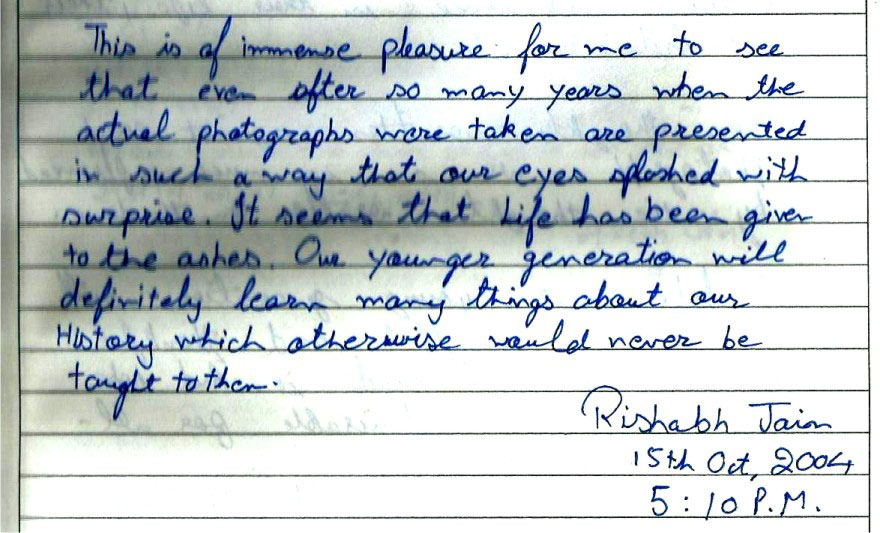 This is of immense pleasure for me to see
that even after so many years when the
actual photographs were taken are presented
in such a way that our eyes sploshed with
surprise. It seems that Life has been given
to the ashes. Our younger generation will
definitely learn many things about our
History which otherwise would never be
taught to them.
Rishabh Jain
15th Oct, 2004
5:10 P.M.